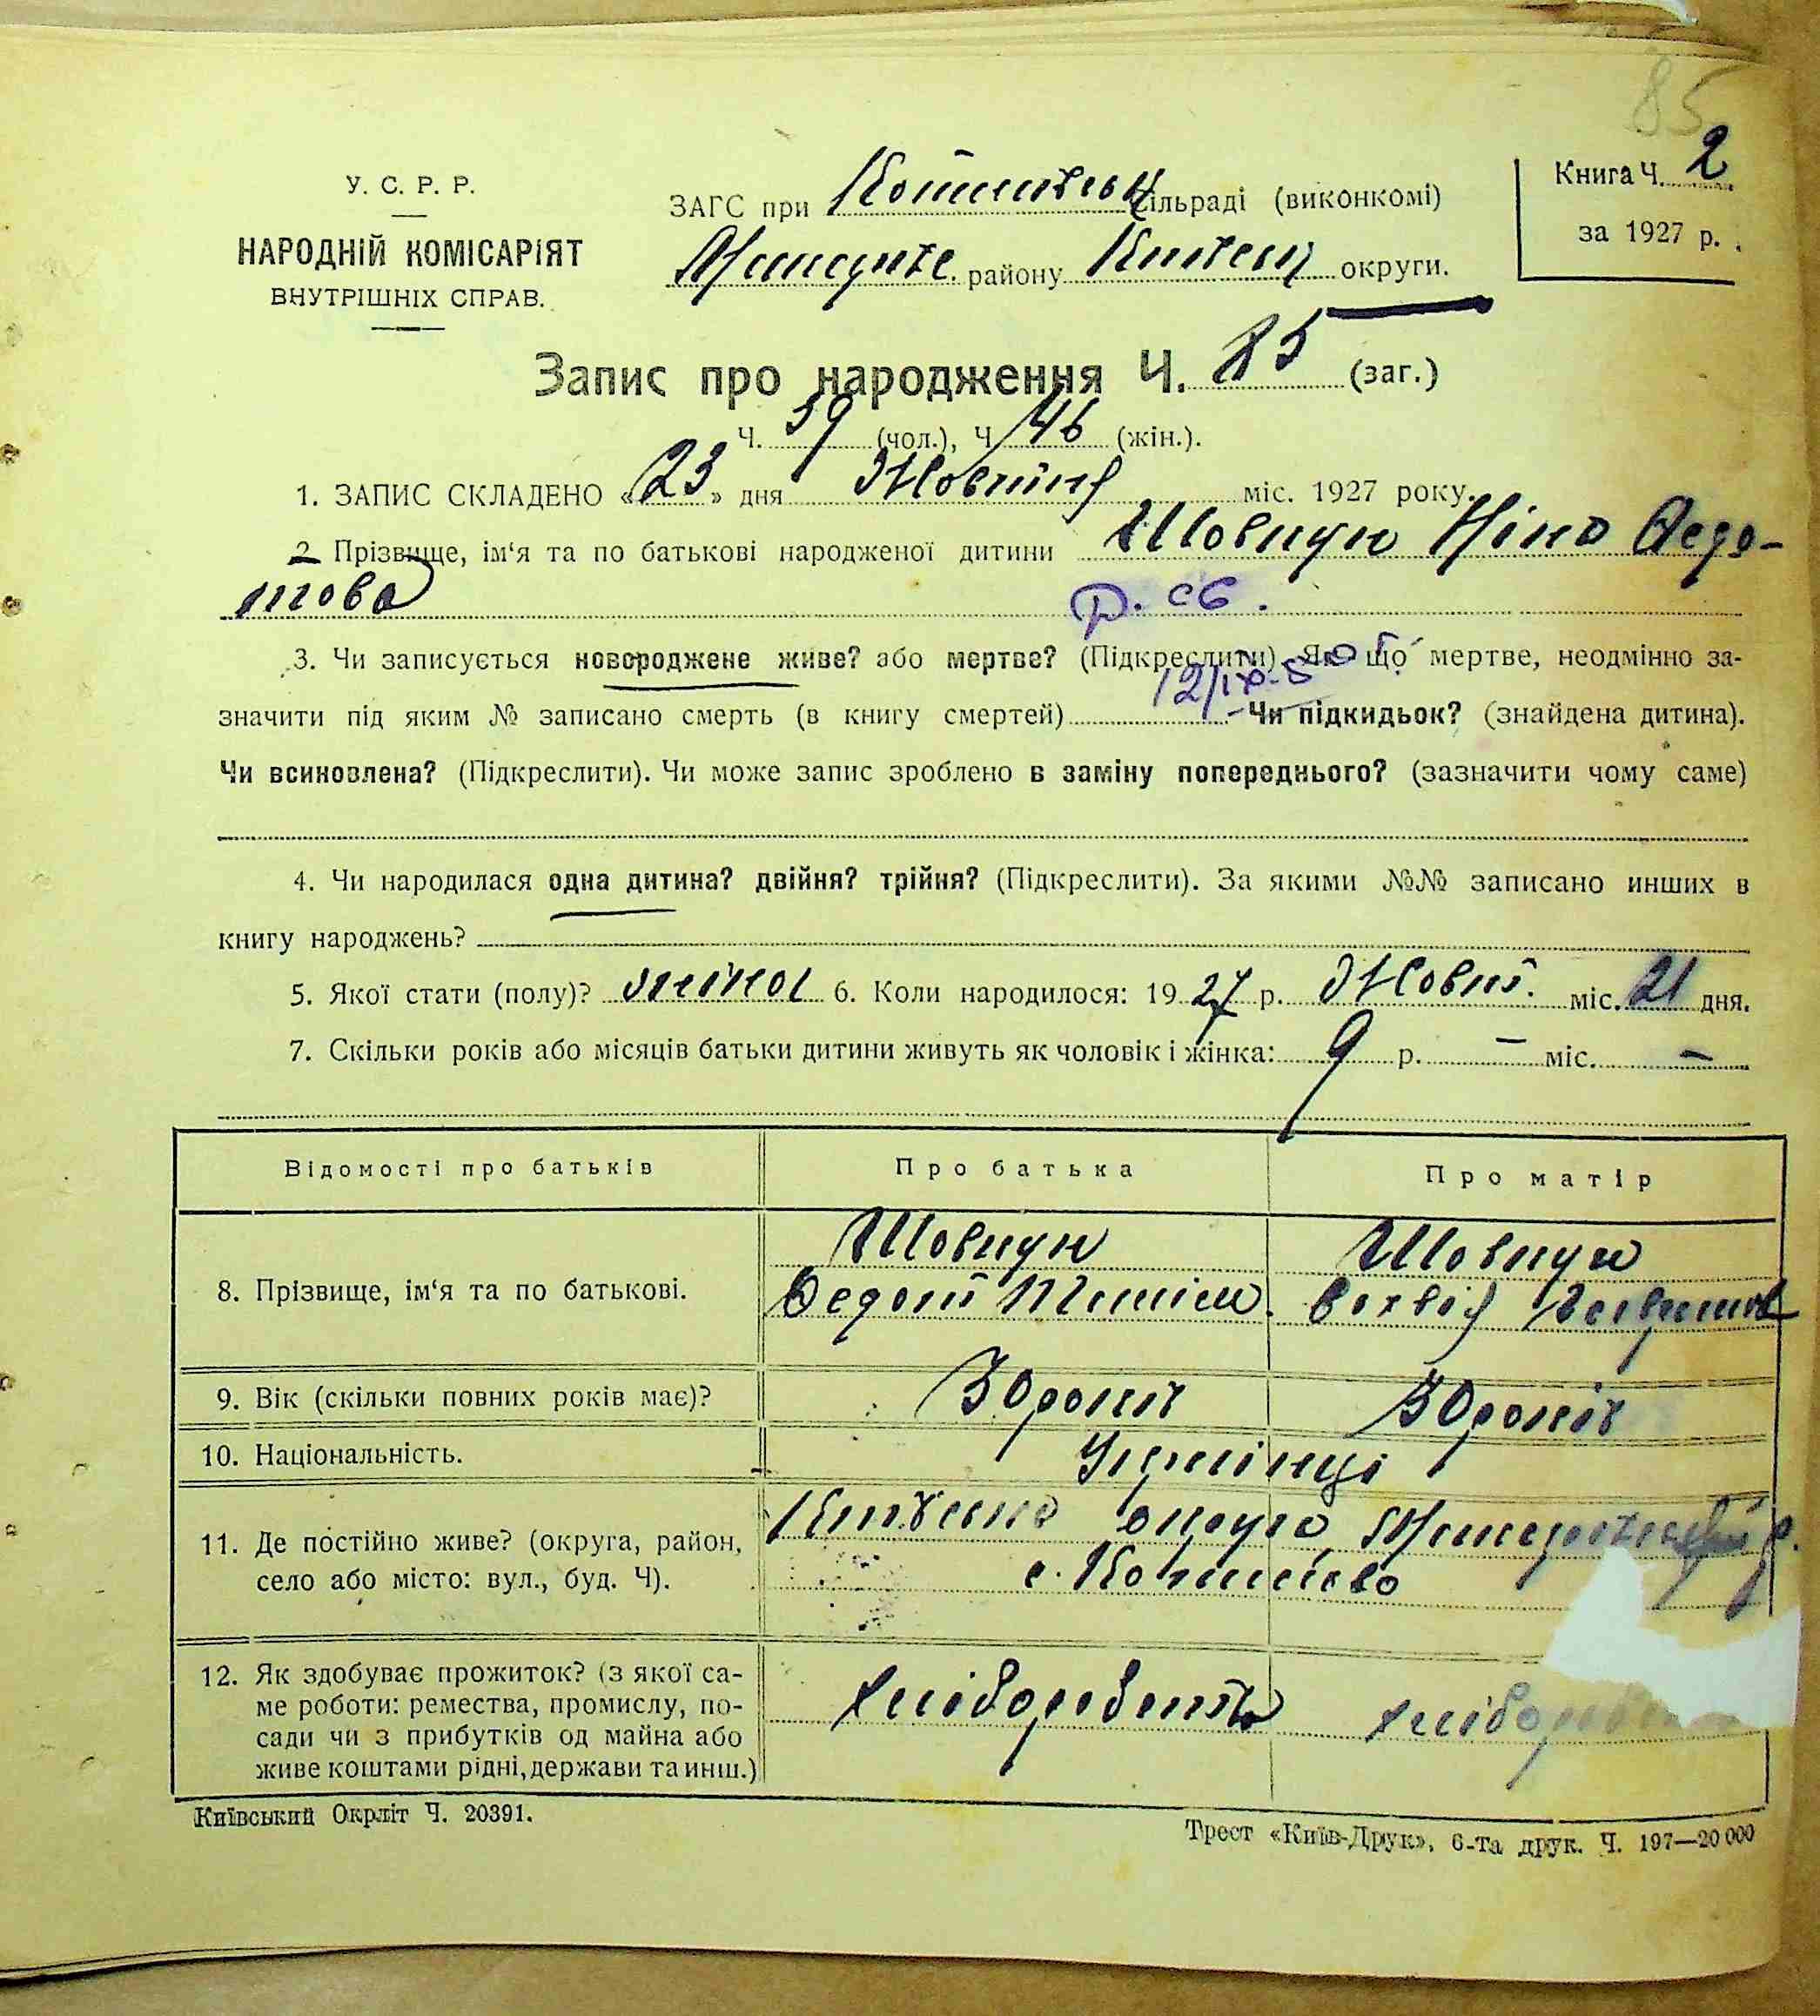 85
У. С. Р. Р.
НАРОДНІЙ КОМІСАРІЯТ
ВНУТРІШНІХ СПРАВ.
ЗАГС при сільраді (виконкомі)
району округи.
Книга Ч. 2
за 1927 р.
Запис про народження Ч. 85 (заг.)
Ч. 39 (чол.), Ч. 46 (жін.).
1. ЗАПИС СКЛАДЕНО «23» дня Жовтня міс. 1927 року.
2. Прізвище, ім‘я та по батькові народженої дитини Шовкун Ніна Федо-
това
р. св.
3. Чи записується новороджене живе? або мертве? (Підкреслити) Як що мертве, неодмінно за-
значити під яким № записано смерть (в книгу смертей) Чи підкидьок? (знайдена дитина).
Чи всиновлена? (Підкреслити). Чи може запис зроблено в заміну попереднього? (зазначити чому саме)
4. Чи народилася одна дитина? двійня? трійня? (Підкреслити). За якими №№ записано инших в
книгу народжень?
5. Якої стати (полу)? жіноч 6. Коли народилося: 1927 р. Жовт. міс. 21 дня.
7. Скільки років або місяців батьки дитини живуть як чоловік і жінка: 9 р. – міс. –
Відомості про батьків Про батька Про матір
8. Прізвище, ім‘я та по батькові. Шовкун Шовкун
Федот
9. Вік (скільки повних років має)? 30 років 30 років
10. Національність. Українці
11. Де постійно живе? (округа, район, округа
село або місто: вул., буд. Ч). с.
12. Як здобуває прожиток? (з якої са-
ме роботи: ремества, промислу, по- хліборобство
сади чи з прибутків од майна або
живе коштами рідні, держави та инш.)
Київський Окрліт Ч. 20391.
Трест «Київ-Друк», 6-та друк. Ч. 197—20 000